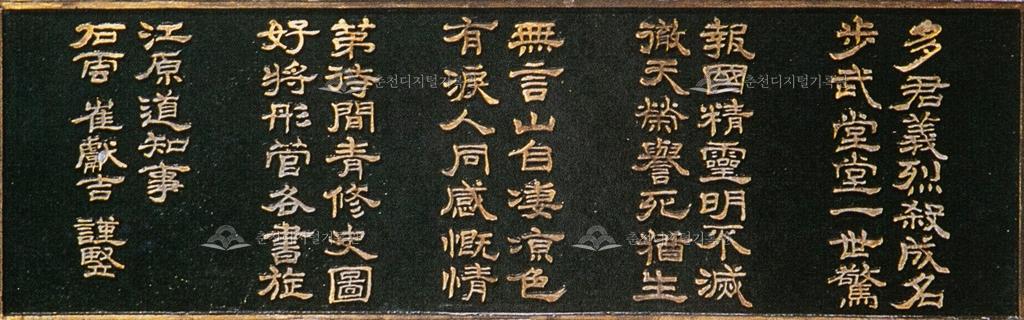 多君義烈殺成名
步武堂堂一世驚
報國精靈明不滅
徹天榮譽死猶生
無言山自凄凉色
有淚人同感慨情
第待間青修史圖
好將彤管各書旌
江原道知事
石雲 崔獻吉 謹竪
춘천디지털기록
춘천디지털기록
춘천디지털기록
춘천디지털기록